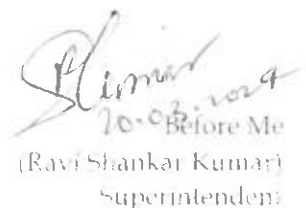 SKumar
20-03-2024
Before Me
(Ravi Shankar Kumar)
Superintendent